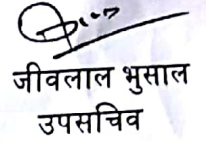 जीवलाल भुसाल
उपसचिव